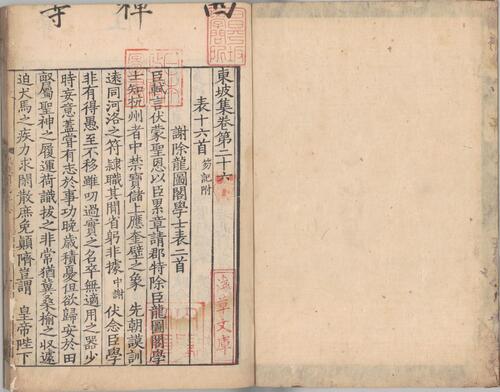 西禅寺
東坡集卷第二十六
表十六首 笏記附
謝除龍圖閣學士表二首
臣軾言伏蒙聖恩以臣累章請郡特除臣龍圖閣學
士知杭州者中禁寶儲上應奎壁之象 先朝謨訓
遠同河洛之符隷職其間省躬非據中謝 伏念臣學
非有得愚至不移雖叨過實之名卒無適用之器少
時妄意蓋甞有志於事功晚歲積憂但欲歸安於田
壄屬聖神之履運荷識拔之非常猶冀桑榆之收遽
迫犬馬之疾力求閑散庶免顛隮豈謂 皇帝陛下
淺草文庫